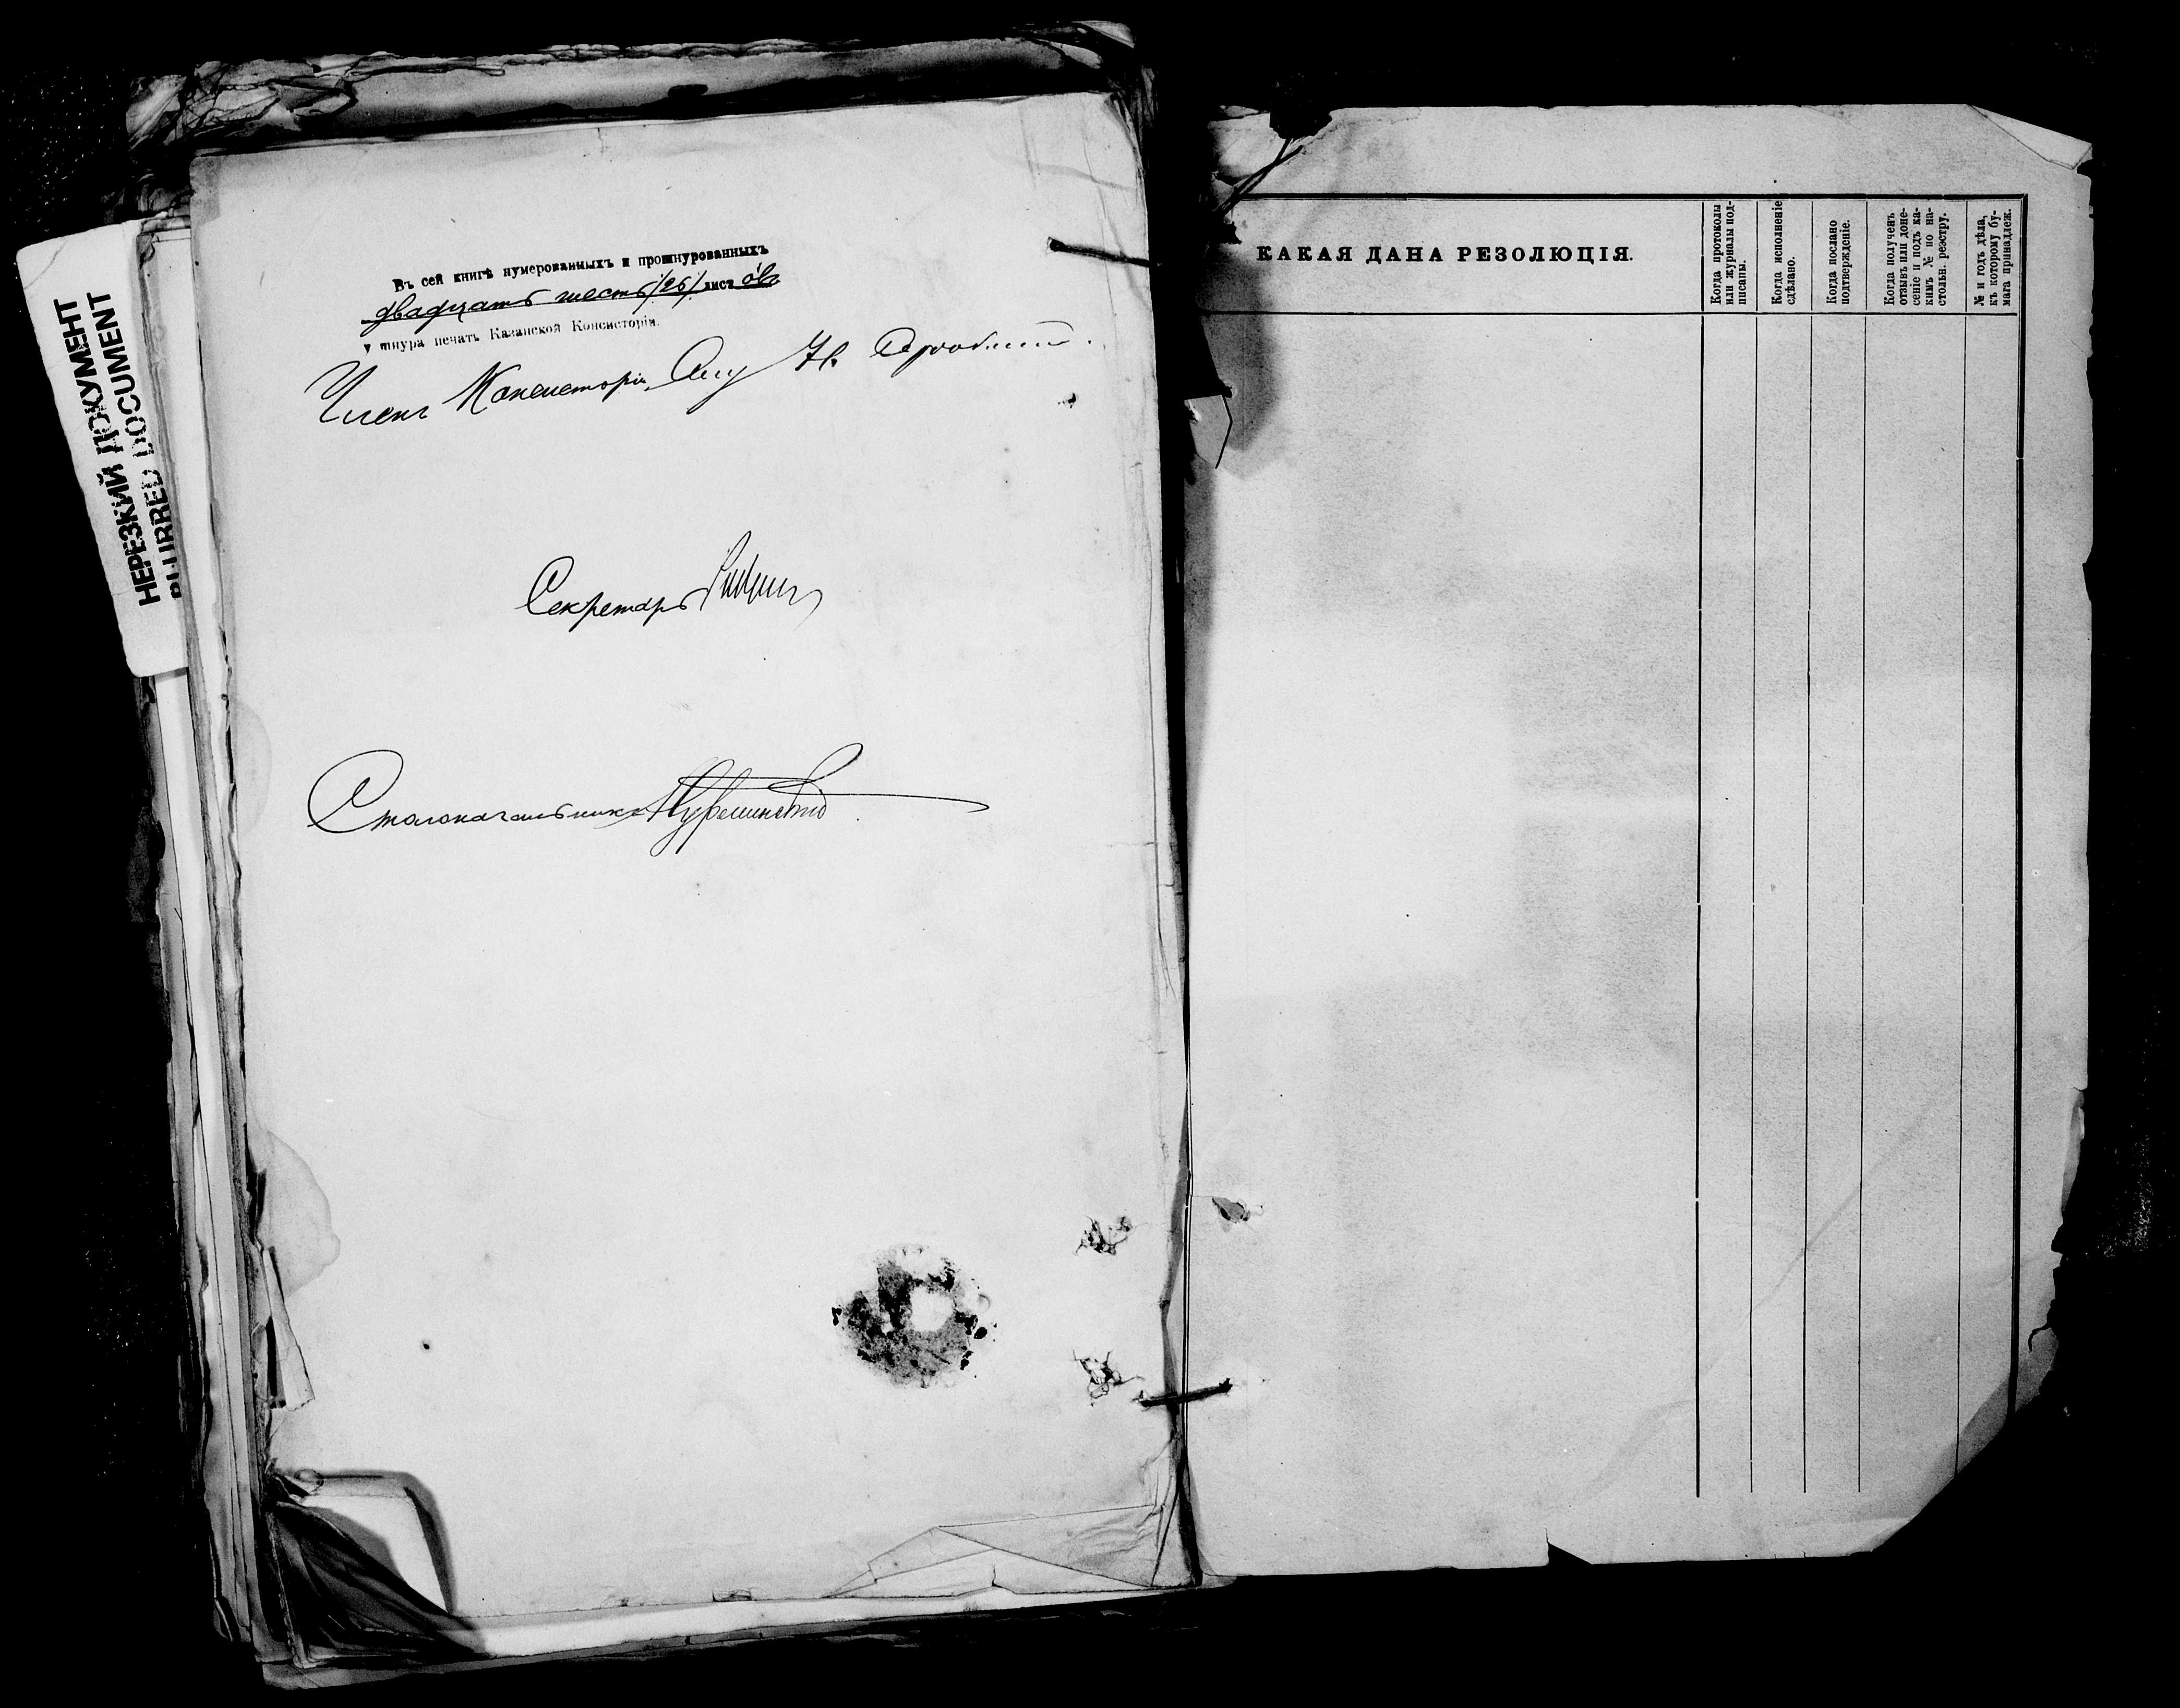 НЕРЕЗКИЙ ДОКУМЕНТ
BLURRED DOCUMENT
Въ сей книгѣ нумерованныхъ и прошнурованныхъ
двадцать шесть /26/ лист овъ
у шнура печать Казанской Консисторіи.
Членъ Консисторіи
Секретарь
Столоначальникъ
КАКАЯ ДАНА РЕЗОЛЮЦІЯ.
Когда протоколы
или журналы под-
писаны.
Когда исполненіе
сдѣлано.
Когда послано
подтвержденіе.
Когда полученъ
отзывъ или доне-
сеніе и подъ ка-
кимъ № по на-
стольн. реестру.
№ и годъ дѣла,
къ которому бу-
мага принадлеж.